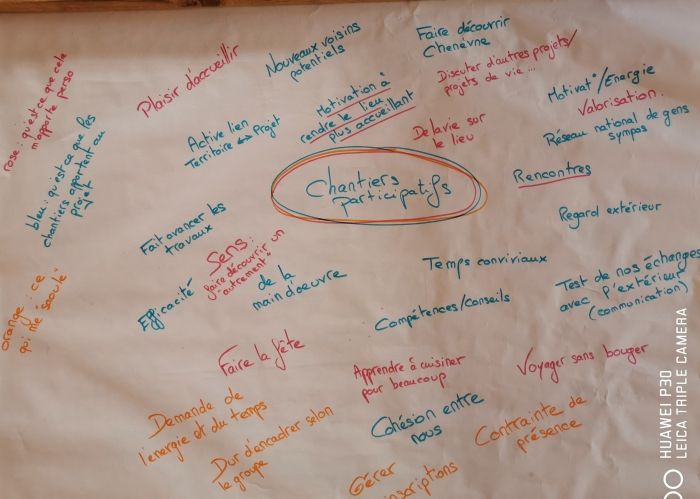 rose : qu'est ce que cela
m'apporte perso
bleu : qu'est ce que les
chantiers apportent au
projet
orange : ce
qui me "saoule"
Plaisir d'accueillir
Nouveaux voisins
potentiels
Faire découvrir
Chenevne
Discuter d'autres projets/
projets de vie ...
Motivat°/Energie
Valorisation.
Réseau national de gens
sympas
Active lien
Territoire ↔ Projet
Motivation à
rendre le lieu
plus accueillant
De la vie sur
le lieu
Rencontres
Chantiers
participatifs
Regard extérieur
Fait avancer les
travaux
Sens :
faire découvrir un
"autrement"
Efficacité
de la
main d'oeuvre
Temps conviviaux
Compétences/conseils
Test de nos échanges
avec l'extérieur
(communication)
Faire la fête
Apprendre à cuisiner
pour beaucoup
Voyager sans bouger
Demande de
l'énergie et du temps
Dur d'encadrer selon
le groupe
Cohésion entre
nous
Contrainte de
présence
Gérer
inscriptions
HUAWEI P30
LEICA TRIPLE CAMERA